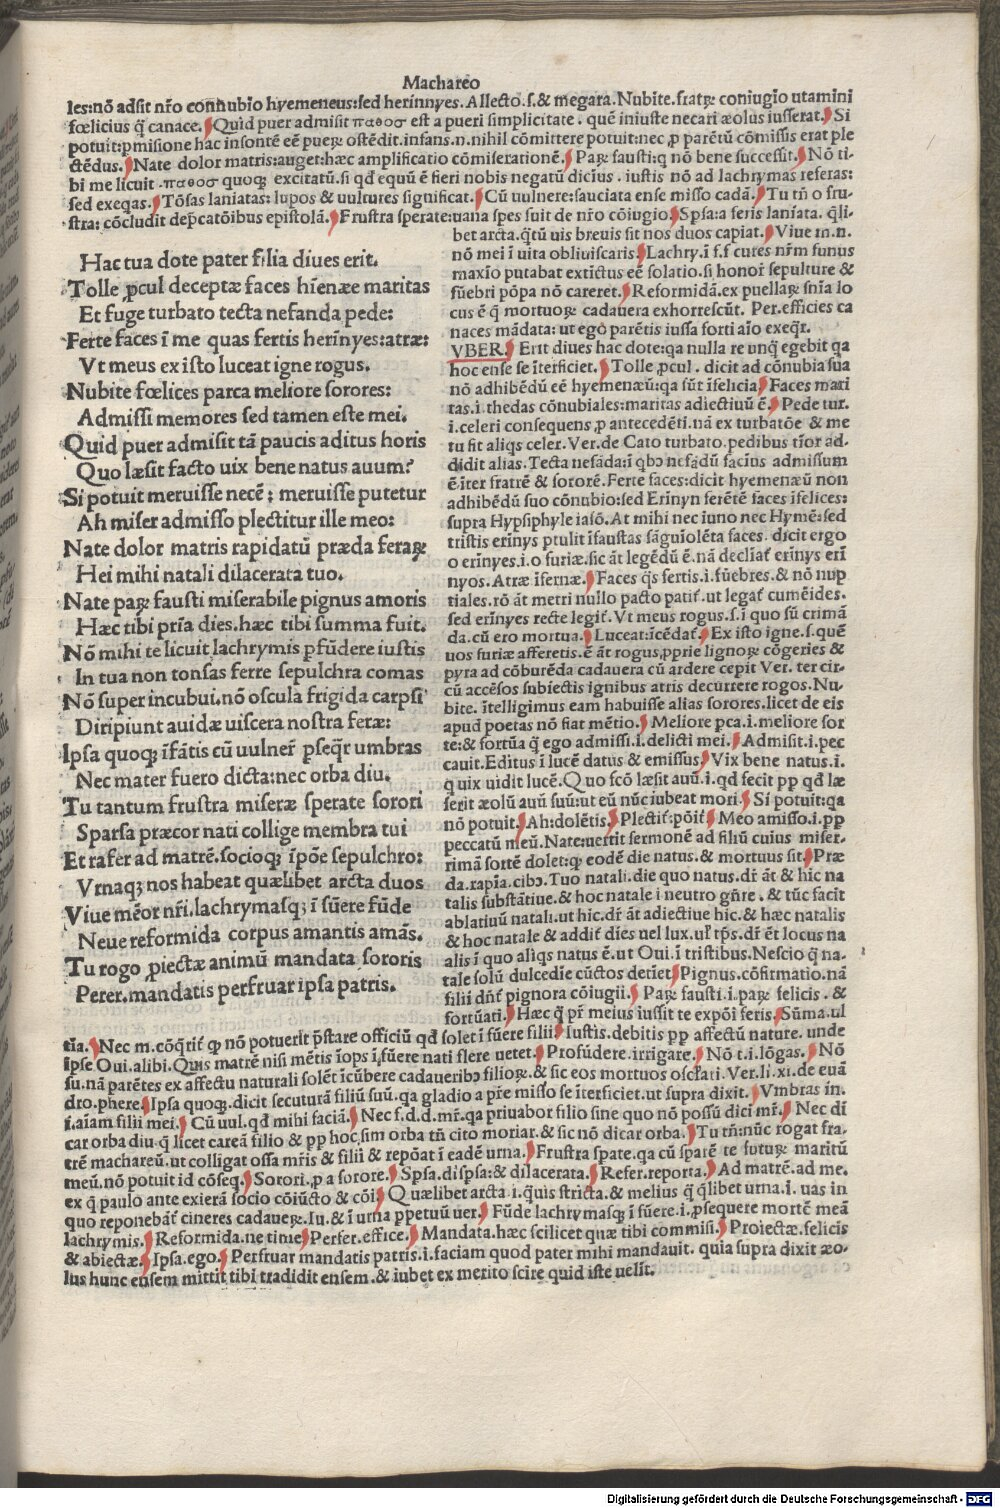 Machareo
les:nō adsit nr̄o connubio hyemeneus:sed herinnyes. Allecto.s.& megara. Nubite.fratꝝ coniugio utamini
fœlicius q̄ canace. Quid puer admisit παθοσ est a pueri simplicitate. quē iniuste necari æolus iusserat. Si
potuit:pmisione hac insontē eē pueꝝ ostēdit.infans.n.nihil cōmittere potuit:nec ꝓ parētū cōmissis erat ple
ctēdus. Nate dolor matris:auget:hæc amplificatio cōmiserationē. Paꝝ fausti:q nō bene successit. Nō ti-
bi me licuit. παθοσ quoqꝫ excitatū.si qd̄ equū ē fieri nobis negatū dicīus. iustis nō ad lachrymas referas:
sed exeqas. Tōsas laniatas: lupos & uultures significat. Cū uulnere:sauciata ense misso cadā. Tu tn̄ o fru-
stra: cōcludit dep̄catōibus epistolā. Frustra sperate:uana spes fuit de nr̄o cōiugio. Spsa:a feris laniata. q̄li-
Hac tua dote pater filia diues erit.
Tolle ꝓcul deceptæ faces hīenæe maritas
Et fuge turbato tecta nefanda pede:
Ferte faces ī me quas fertis herīnyes:atræ:
Vt meus ex isto luceat igne rogus.
Nubite fœlices parca meliore sorores:
Admissi memores sed tamen este mei.
Quid puer admisit tā paucis aditus horis
Quo læsit facto uix bene natus auum?
Si potuit meruisse necē: meruisse putetur
Ah miser admisso plectitur ille meo:
Nate dolor matris rapidatū præda feraꝝ
Hei mihi natali dilacerata tuo.
Nate paꝝ fausti miserabile pignus amoris
Hæc tibi prīa dies.hæc tibi summa fuit.
Nō mihi te licuit lachrymis pfūdere iustis
In tua non tonsas ferre sepulchra comas
Nō super incubui.nō oscula frigida carpsi
Diripiunt auidæ uiscera nostra feræ:
Ipsa quoqꝫ īfātis cū uulner̄ pseqr̄ umbras
Nec mater fuero dicta:nec orba diu.
Tu tantum frustra miseræ sperate sorori
Sparsa præcor nati collige membra tui
Et rafer ad matrē.socioqꝫ īpōe sepulchro:
Vrnaqꝫ nos habeat quælibet arcta duos
Viue mēor nr̄i.lachrymasqꝫ ī fūere fūde
Neue reformida corpus amantis amās.
Tu rogo ꝓiectæ animū mandata sororis
Perer.mandatis perfruar ipsa patris.
bet arcta.q̄tū uis breuis sit nos duos capiat. Viue m.n.
nō mei ī uita obliuiscaris. Lachry.ī f.f cures nr̄m funus
maxīo putabat extīctus eē solatio.si honor̄ sepulture &
fūebri pōpa nō careret. Reformidā.ex puellaꝝ sn̄ia lo
cus ē q̄ mortuoꝝ cadauera exhorrescūt. Per.efficies ca
naces mādata: ut ego parētis iussa forti aīo exeqr̄.
VBER. Erit diues hac dote:qa nulla re unq̄ egebit qa
hoc ense se īterficiet. Tolle ꝓcul. dicit ad cōnubia sua
nō adhibēdū eē hyemenæū:qa sūt īfelicia. Faces mari
tas.i.thedas cōnubiales:maritas adiectiuū ē. Pede tur.
i.celeri consequens ꝓ antecedēti.nā ex turbatōe & me
tu fit aliqs celer. Ver.de Cato turbato.pedibus tīor ad-
didit alias. Tecta nefāda:ī qbꝰ nefādū facīus admissum
ē īter fratrē & sororē. Ferte faces:dicit hyemenæū non
adhibēdū suo cōnubio:sed Erīnyn ferētē faces īfelices:
supra Hypsiphyle iasō. At mihi nec iuno nec Hymē:sed
tristis erīnys ptulit īfaustas sāguiolēta faces. dicit ergo
o erīnyes.i.o furiæ.sic āt legēdū ē.nā declīat̄ erīnys erī
nyos. Atræ īfernæ. Faces q̄s fertis.i.fūebres.& nō nup
tiales.rō āt metri nullo pacto patit̄.ut legat̄ cumēides.
sed erīnyes recte legit̄. Vt meus rogus.s.ī quo sū crimā
da.cū ero mortua. Luceat:īcēdat̄. Ex isto igne.s.quē
uos furiæ afferetis.ē āt rogus,pprie lignoꝝ cōgeries &
pyra ad cōburēda cadauera cū ardere cepit Ver. ter cir-
cū accēsos subiectis ignibus atris decurrere rogos. Nu-
bite. ītelligimus eam habuisse alias sorores.licet de eis
apud poetas nō fiat mētio. Meliore pca.i.meliore sor
te:& fortūa q̄ ego admissi.i.delicti mei. Admisit.i.pec
cauit.Editus ī lucē datus & emissus. Vix bene natus.i.
q uix uidit lucē. Quo fcō læsit auū.i.qd fecit pp qd læ
serit æolū auū suū:ut eū nūc iubeat mori. Si potuit:qa
nō potuit. Ah:dolētis. Plectit̄:pōit̄. Meo amisso.i.pp
peccatū meū. Nate:uertit sermonē ad filiū cuius miser-
rimā sortē dolet:q eodē die natus.& mortuus sit. Præ
da.rapīa.cibꝰ. Tuo natali.die quo natus.dr̄ āt & hic na
talis substātiue.& hoc natale i neutro gn̄re. & tūc facit
ablatiuū natali.ut hic.dr̄ āt adiectiue hic.& hæc natalis
& hoc natale & addit̄ dies uel lux.ul̄ tp̄s.dr̄ ēt locus na
alis ī quo aliqs natus ē.ut Oui.ī tristibus.Nescio q̄ na-
tale solū dulcedīe cūctos detīet. Pignus.cōfirmatio.nā
filii dn̄t̄ pignora cōiugii. Paꝝ fausti.i.paꝝ felicis. &
fortūati. Hæc q̄ pr̄ meius iussit te expōi feris. Sūma.ul
tīa. Nec m.cōq̄rit̄ ꝙ nō potuerit p̄stare officiū qd̄ solet ī fūere filii. Iustis.debitis pp affectū nature. unde
ipse Oui.alibi.Quis matrē nisi mētis īops ī fūere nati flere uetet. Profūdere.irrigare. Nō t.i.lōgas. Nō
su.nā parētes ex affectu naturali solēt īcūbere cadaueribꝰ filioꝝ.& sic eos mortuos oscl̄ati. Ver.li.xi.de euā
dro.phere. Ipsa quoqꝫ.dicit secuturā filiū suū.qa gladio a pr̄e misso se īterficiet.ut supra dixit. Vmbras in.
i.aīam filii mei. Cū uul.qd̄ mihi faciā. Nec f.d.d.mr̄.qa priuabor filio sine quo nō possū dici mr̄. Nec di
car orba diu q̄ licet careā filio & pp hoc,sim orba tn̄ cito moriar.& sic nō dicar orba. Tu tn̄:nūc rogat fra-
trē machareū.ut colligat ossa mr̄is & filii & repōat ī eadē urna. Frustra spate.qa cū sparē te futuꝝ maritū
meū.nō potuit id cōseq. Sorori.ꝓ a sorore. Spsa.dispsa:& dilacerata. Refer.reporta. Ad matrē.ad me.
ex q̄ paulo ante exierā socio cōiūcto & cōi. Quælibet arcta.i.quis stricta.& melius q̄ q̄libet urna.i. uas in
quo reponebāt̄ cineres cadaueꝝ.Iu.& ī urna ppetuū uer. Fūde lachrymasqꝫ ī fūere.i.ꝓsequere mortē meā
lachrymis. Reformida.ne time. Perfer.effice. Mandata.hæc scilicet quæ tibi commisi. Proiectæ.felicis
& abiectæ. Ipsa.ego. Perfruar mandatis patris.i.faciam quod pater mihi mandauit. quia supra dixit æo-
lus hunc ensem mittit tibi tradidit ensem.& iubet ex merito scire quid iste uelit.
Digitalisierung gefördert durch die Deutsche Forschungsgemeinschaft - DFG